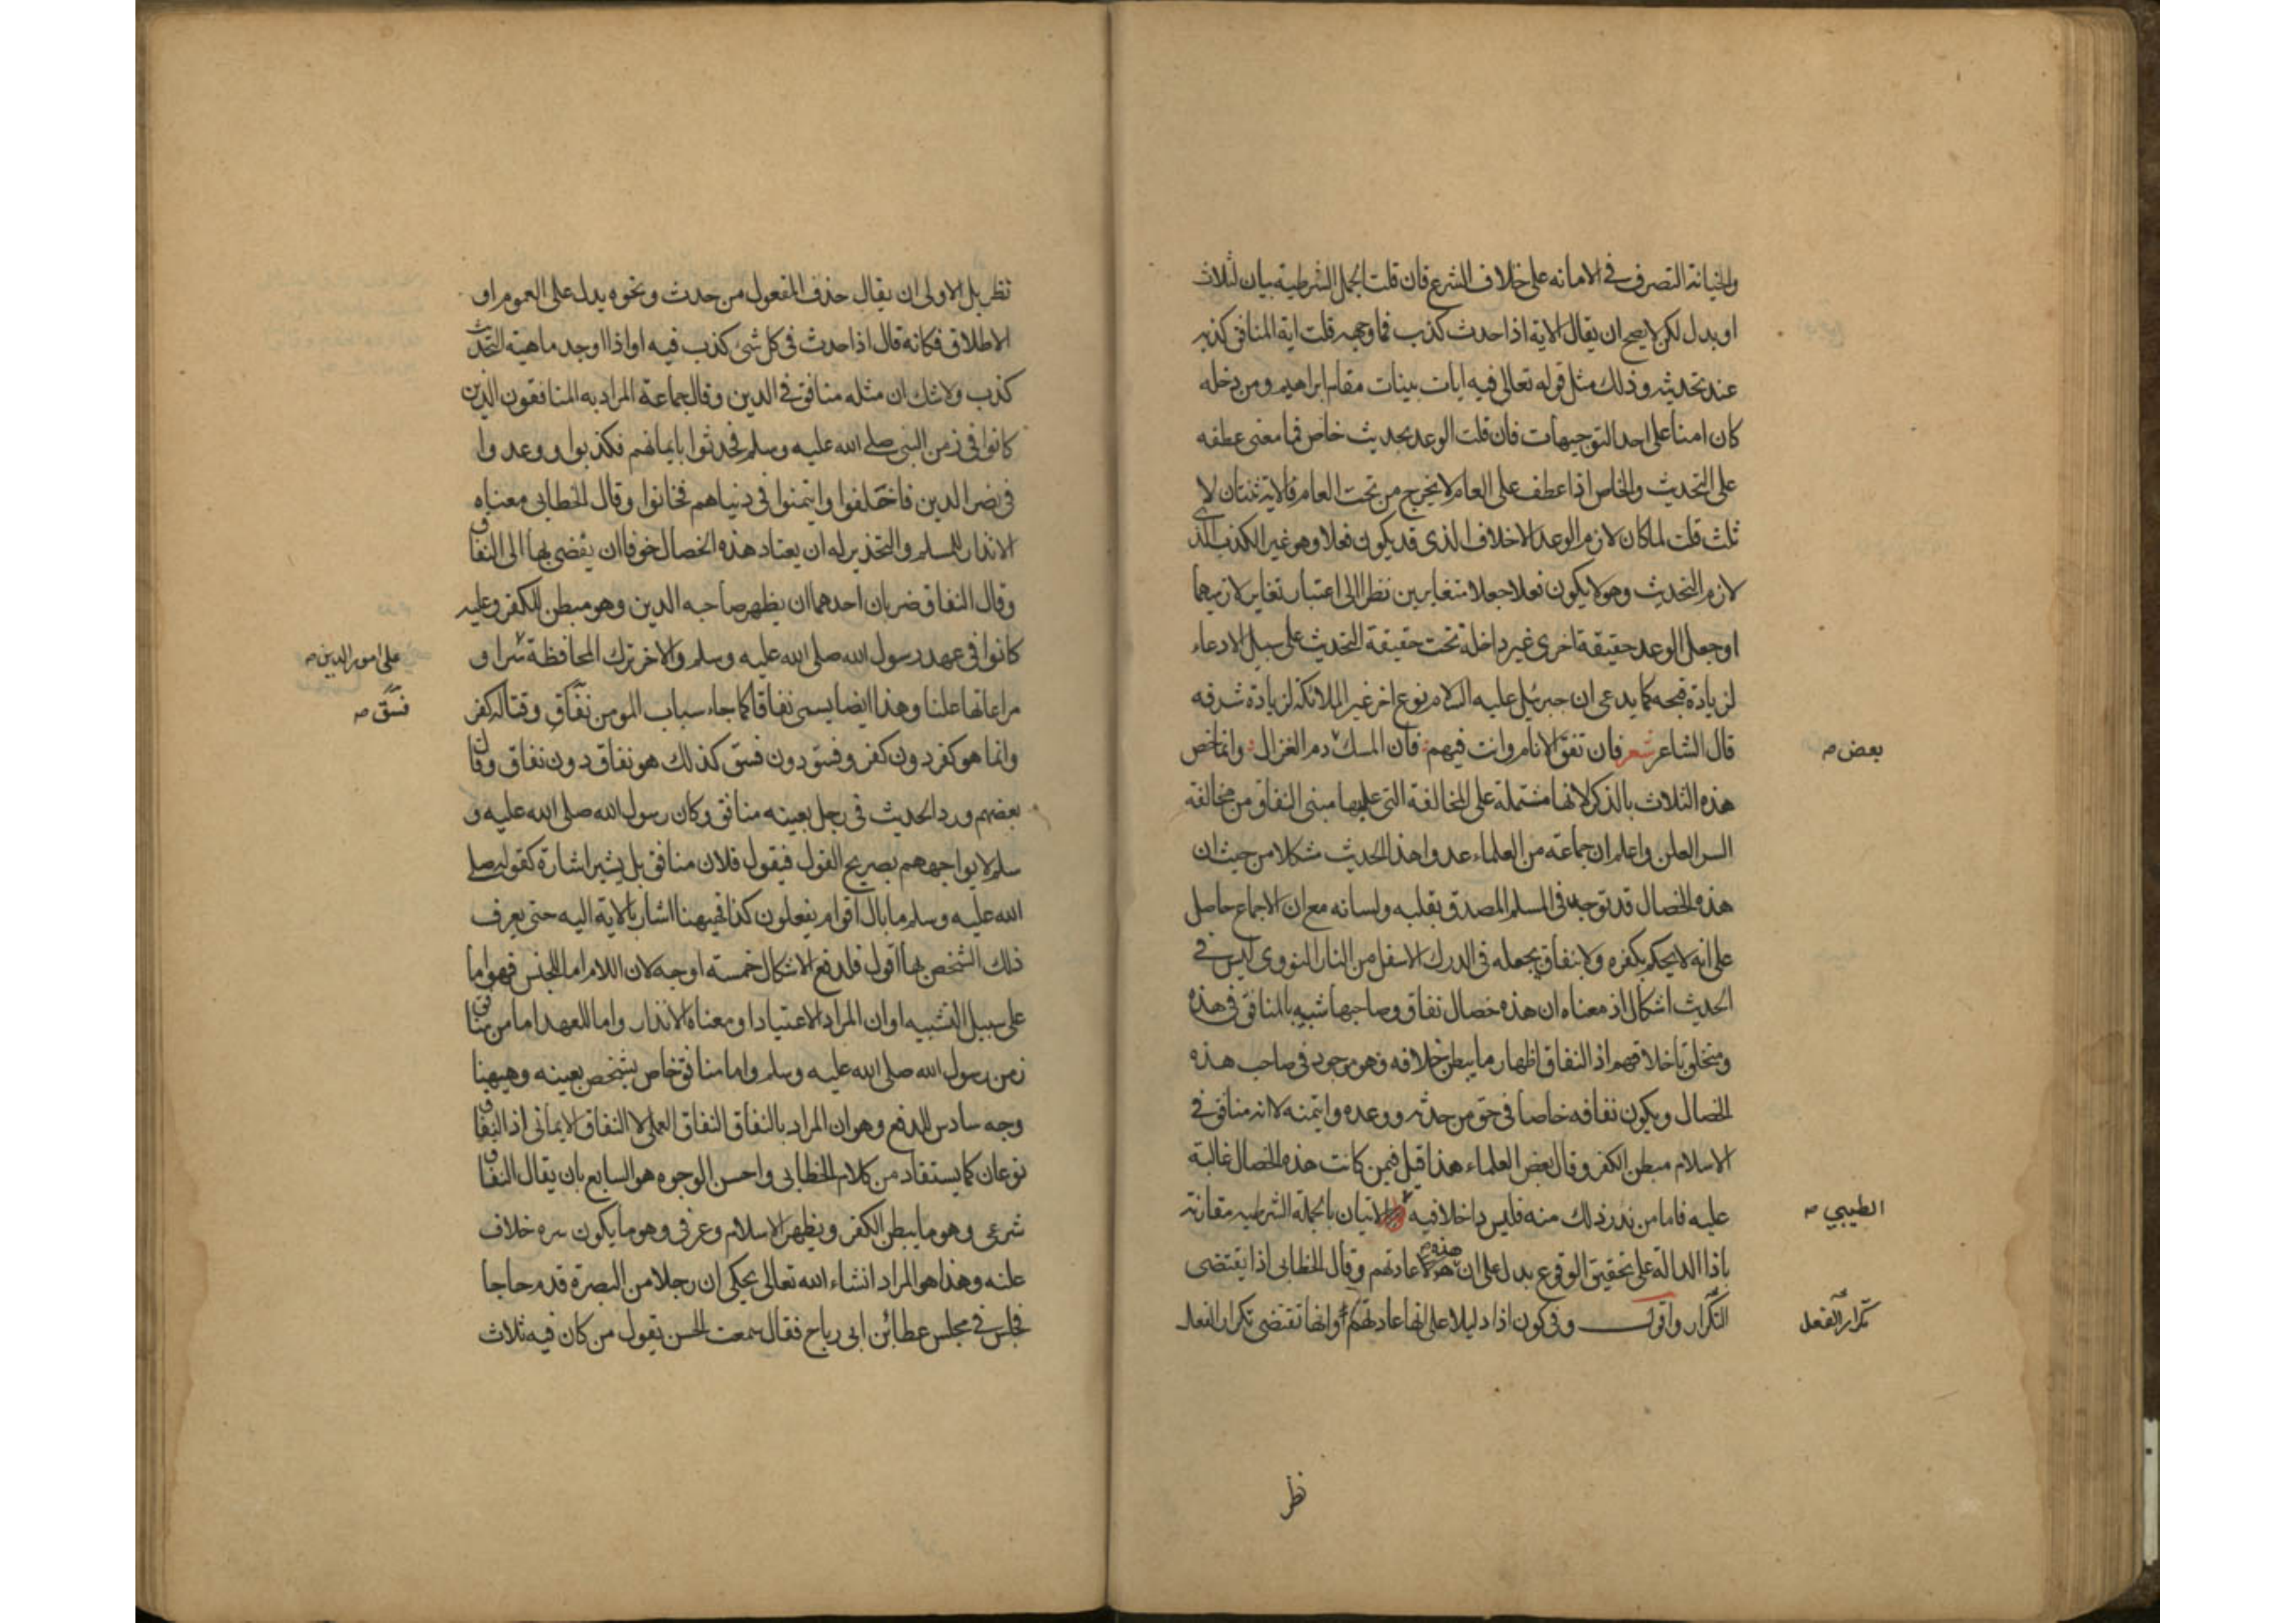 والخيانة التصرف في الامانه على خلاف الشرع فان قلت الجمل الشرطية بيان لثلاث
او بدل لكن لا يصح ان يقال الاية اذا حدث كذب فما وجهه قلت اية المنافق كذبه
عند تحديثه وذلك مثل قوله تعالى فيه ايات بينات مقام ابراهيم ومن دخله
كان امنا على احد التوجيهات فان قلت الوعد تحديث خاص فما معنى عطفه
على التحديث والخاص اذا عطف على العام لا يخرج من تحت العام فالاية ثنتان لا
ثلث قلت لما كان لازم الوعد الاخلاف الذى قد يكون فعلا وهو غير الكذب الذى
لازم التحديث وهو لا يكون فعلا جعلا متغايرين نظرا الى اعتبار تغاير لازميهما
او جعل الوعد حقيقة اخرى غير داخلة تحت حقيقة التحديث على سبيل الادعاء
لزيادة قبحه كما يدعى ان جبرئيل عليه السلام نوع اخر غير الملائكة لزيادة شرفه
قال الشاعر شعر فان تفق الانام وانت فيهم فان المسك دم الغزال وانما خص
بعض صـ
هذه الثلاث بالذكر لانها مشتملة على المخالفة التى عليها مبنى النفاق من مخالفة
السر العلن واعلم ان جماعة من العلماء عدوا هذا الحديث مشكلا من حيث ان
هذه الخصال قد توجد فى المسلم المصدق بقلبه ولسانه مع ان الاجماع حاصل
على انه لا يحكم بكفره ولا بنفاق يجعله فى الدرك الاسفل من النار النووى ليس في
الحديث اشكال اذ معناه ان هذه خصال نفاق وصاحبها شبيه بالمنافق فى هذه
ومتخلق باخلاقهم اذ النفاق اظهار ما يبطن خلافه وهو موجود فى صاحب هذه
الخصال ويكون نفاقه خاصا فى حق من حدثه ووعده وايتمنه لا انه منافق في
الاسلام مبطن الكفر وقال بعض العلماء هذا قيل فيمن كانت هذه الخصال غالبة
عليه فاما من ندر ذلك منه فليس داخلا فيه الاتيان بالجملة الشرطيه مقارنة
الطيبي صـ
باذا الدالة على تحقيق الوقوع يدل على ان هذه عادتهم وقال الخطابى اذا يقتضى
التكرار واقول وفى كون اذا دليلا على انها عادتهم وانها تقتضى تكرار الفعل
تكرار الفعل
نظر
نظر بل الاولى ان يقال حذف المفعول من حدث ونحوه يدل على العموم او
الاطلاق فكانه قال اذا حدث فى كل شئ كذب فيه او اذا اوجد ماهية التحديث
كذب ولا شك ان مثله منافق في الدين وقال جماعة المراد به المنافقون الذين
كانوا فى زمن النبى صلى الله عليه وسلم فحدثوا بايمانهم فكذبوا ووعدوا
فى نصر الدين فاخلفوا وايتمنوا فى دنياهم فخانوا وقال الخطابى معناه
الانذار للمسلم والتحذير له ان يعتاد هذه الخصال خوفا ان يفضى بها الى النفاق
وقال النفاق ضربان احدهما ان يظهر صاحبه الدين وهو مبطن للكفر وعليه
كانوا فى عهد رسول الله صلى الله عليه وسلم والاخر ترك المحافظة سرا و
على امور الدين صـ
مراعاتها علنا وهذا ايضا يسمى نفاقا كما جاء سباب المومن نفاق وقتاله كفر
فسق صـ
وانما هو كفر دون كفر وفسق دون فسق كذلك هو نفاق دون نفاق وقال
بعضهم ورد الحديث فى رجل بعينه منافق وكان رسول الله صلى الله عليه و
سلم لا يواجههم بصريح القول فيقول فلان منافق بل يشير اشارة كقوله صلى
الله عليه وسلم ما بال اقوام يفعلون كذا فههنا اشار بالاية اليه حتى يعرف
ذلك الشخص بها اقول فلدفع الاشكال خمسته اوجه لان اللام اما للجنس فهو اما
على سبيل التشبيه او ان المراد الاعتياد او معناه الانذار واما للعهد اما من منافق
زمن رسول الله صلى الله عليه وسلم واما منافق خاص بشخص بعينه وهيهنا
وجه سادس للدفع وهو ان المراد بالنفاق النفاق العملى لا النفاق الايمانى اذ النفاق
نوعان كما يستفاد من كلام الخطابى واحسن الوجوه هو السابع بان يقال النفاق
شرعى وهو ما يبطن الكفر ويظهر الاسلام وعرفى وهو ما يكون سره خلاف
علنه وهذا هو المراد انشاء الله تعالى يحكى ان رجلا من البصرة قدم حاجا
فجلس في مجلس عطا بن ابى رباح فقال سمعت الحسن يقول من كان فيه ثلاث